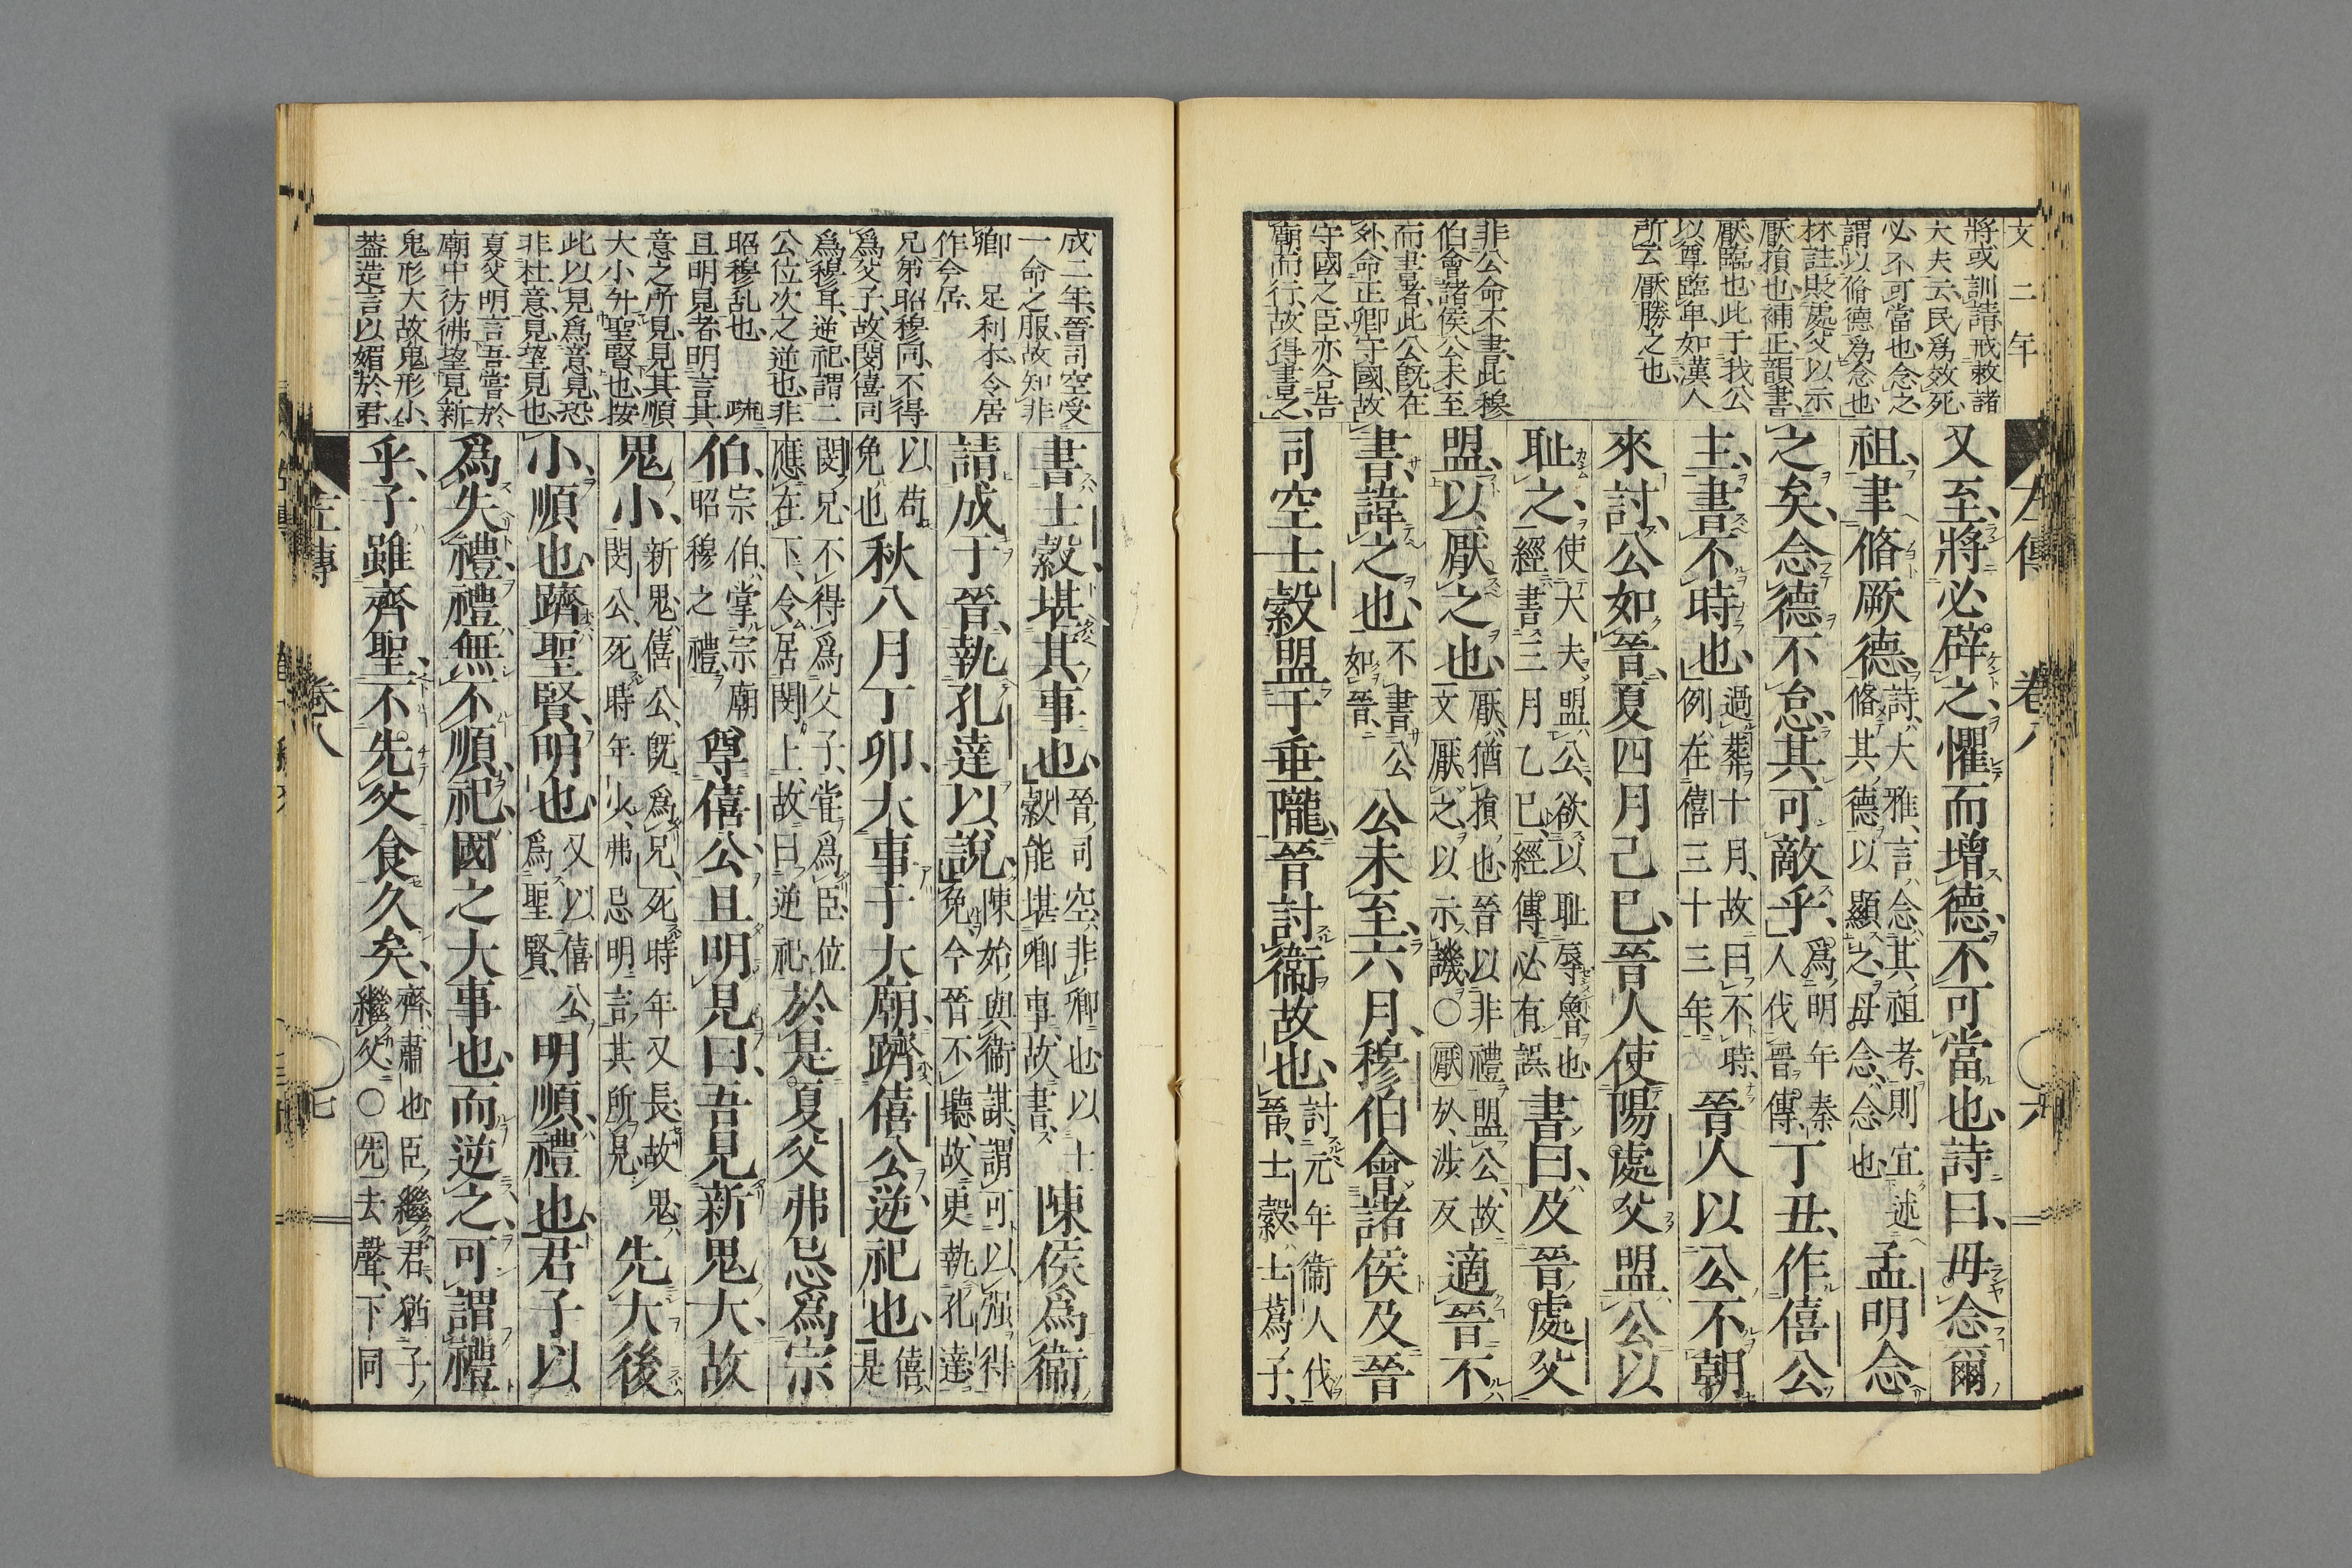 文二年
將或訓請戒敕諸
大夫云民爲效死
必不可當也念之
謂以脩德爲念也
林註貶處父以示
厭損也補正韻書
厭臨也此于我公
以尊臨卑如漢人
所云厭勝之也
非公命不書此穆
伯會諸侯公未至
而書者此公既在
外命正卿守國故
守國之臣亦合告
廟而行故得書是
又至將必辟之懼而增德不可當也詩曰毋念爾
祖聿脩厥德詩大雅言念其祖考則宜述
脩其德以顯之毋念念也孟明念
之矣念德不怠其可敵乎爲明年秦
人伐晉傳丁丑作僖公
主書不時也過葬十月故曰不時
例在僖三十三年晉人以公不朝
來討公如晉夏四月己巳晉人使陽處父盟公以
耻之使大夫盟公欲以耻辱魯也
經書三月乙巳經傳必有誤書曰及晉處父
盟以厭之也厭猶損也晉以非禮盟公故
文厭之以示譏○厭於涉反適晉不
書諱之也不書公
如晉公未至六月穆伯會諸侯及晉
司空士縠盟于垂隴晉討衞故也討元年衞人伐
晉士縠士蒍子
左傳 卷八 七
成二年晉司空受
一命之服故知非
卿 足利本令居
作今居
兄弟昭穆同不得
爲父子故閔僖同
爲穆耳逆祀謂二
公位次之逆也非
昭穆乱也 疏
且明見者明言其
意之所見見其順
大小升聖賢也按
此以見爲意見恐
非杜意見望見也
夏父明言吾嘗於
廟中彷彿望見新
鬼形大故鬼形小
葢造言以媚於君
書士縠堪其事也晉司空非卿也以士
縠能堪卿事故書陳侯爲衞
請成于晉執孔達以說陳始與衞謀謂可以强得
免今晉不聽故更執孔達
以苟
免也秋八月丁卯大事于大廟躋僖公逆祀也僖
是
閔兄不得爲父子嘗爲臣位
應在下令居閔上故曰逆祀於是夏父弗忌爲宗
伯宗伯掌宗廟
昭穆之禮尊僖公且明見曰吾見新鬼大故
鬼小新鬼僖公既爲兄死時年又長故鬼
閔公死時年少弗忌明言其所見先大後
小順也躋聖賢明也又以僖公
爲聖賢明順禮也君子以
爲失禮禮無不順祀國之大事也而逆之可謂禮
乎子雖齊聖不先父食久矣齊肅也臣繼君猶子
繼父○先去聲下同